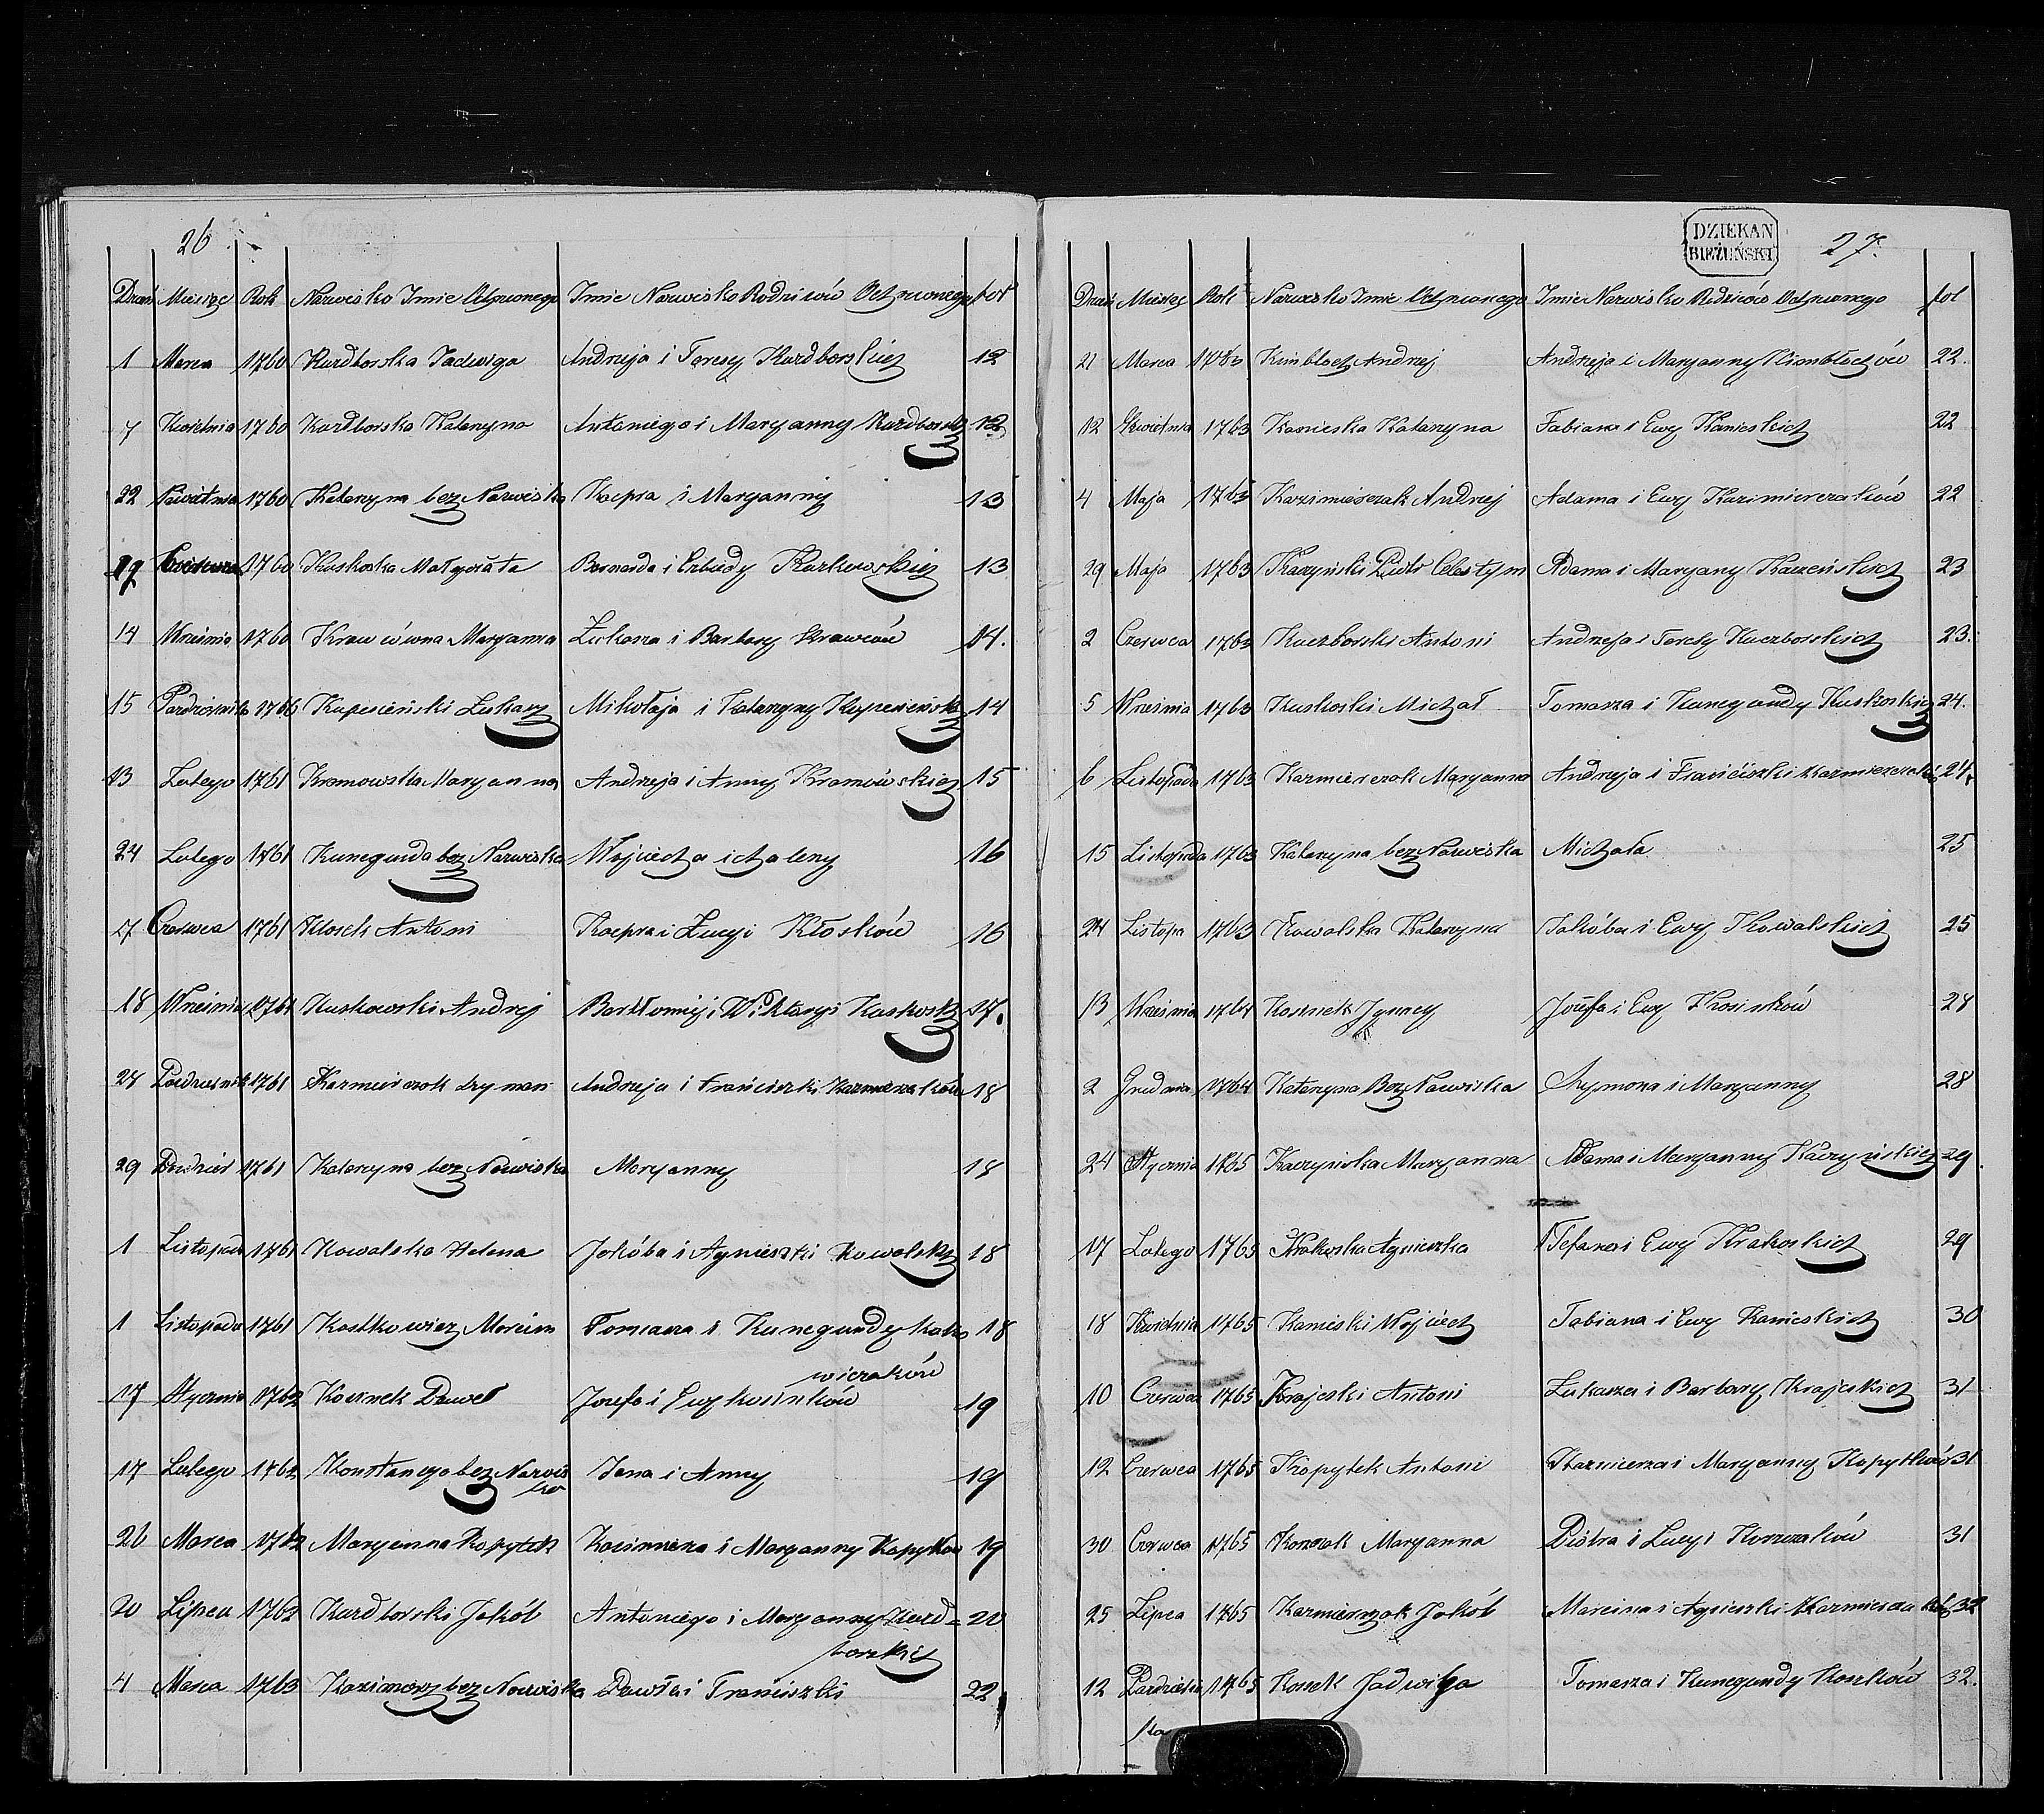 26
Dzień Miesiąc Rok Nazwisko Imie Ochrzconego Imie Nazwisko Rodziców Ochrzconego fol
1 Marca 1760 Kurdborska Jadwiga Andrzeja i Teresy Kurdborskich 12
7 Kwietnia 1760 Kurdborska Katarzyna Antoniego i Maryanny Kurdborsk 12
22 1760 Katarzyna bez Nazwiska Kacpra i Maryanny 13
29 Czerwca 1760 Kuskoska Małgorzata Bernarda i 13
14 Wrzesnia 1760 Krawcówna Maryanna Łukasza i Barbary Krawców 14.
15 Pazdziernik 1760 Łukasz Mikołaja i Katarzyny 14
13 Lutego 1761 Kramowska Maryanna Andrzeja i Anny Kramówskich 15
24 Lutego 1761 Kunegunda bez Nazwiska Wojciecha i chaleny 16
17 Czerwca 1761 Klosek Antoni Kacpra i Łucyi Kłosków 16
18 Wrzesnia 1761 Kuskowski Andrzej Bartłomieja i Wiktoryi Kuskosk 17.
28 Pazdziernik 1761 Kazmierczak Szymon Andrzeja i Franciszki Kazmierzaków 18
29 1761 Katarzyna bez Nazwiska Maryanny 18
1 Listopada 1761 Kowalska Helena Jakóba i Agnieszki Kowalsky 18
1 Listopada 1761 Kostkowicz Marcin Tomasza i Kunegundy Kotko
wiczaków 18
17 Stycznia 1762 Kosinek Paweł Jozefa i Ewy Kosinków 19
17 Lutego 1762 Konstancya bez Nazwis
ka Jana i Anny 19
26 Marca 1762 Maryanna Kopytek Kazimierza i Maryanny Kopytków 19
20 Lipca 1762 Kurdborski Jakób Antoniego i Maryanny Kurd=
borskich 20
4 Marca 1763 Kazimierz bez Nazwiska Pawła i Franciszki 22
DZIEKAN
BIEŻUŃSKI
27.
Dzień Miesiąc Rok Nazwisko Imie Ochrzconego Imie Nazwisko Rodziców Ochrzconego fol
21 Marca 1763 Kimbloch Andrzej Andrzeja i Maryanny Kimblochów 22.
12 Kwietnia 1763 Kanieska Katarzyna Fabiana i Ewy Kanieskich 22
4 Maja 1763 Kazimierczak Andrzej Adama i Ewy Kazimierczaków 22
29 Maja 1763 Kaczyński Piotr Celestyn Adama i Maryany Kaczeńskich 23
2 Czerwca 1763 Kuczborski Antoni Andrzeja i Teresy Kuczborskich 23.
5 Wrzesnia 1763 Kuskoski Michał Tomasza i Kunegundy Kuskoskich 24.
6 Listopada 1763 Kazmierczak Maryanna Andrzeja i Franciszki Kazmierczaków 24.
15 Listopada 1763 Katarzyna bez Nazwiska Michała 25
24 Listopa 1763 Kowalska Katarzyna Jakóba i Ewy Kowalskich 25
13 Wrzesnia 1764 Kosinek Ignacy Józefa i Ewy Kosinków 28
2 Grudnia 1764 Katarzyna Bez Nazwiska Szymona i Maryanny 28
24 Stycznia 1765 Kaczyńska Maryanna Adama i Maryanny Kaczyńskich 29
17 Lutego 1765 Krakoska Agnieszka Stefana i Ewy Krakoskich 29
18 Kwietnia 1765 Kanieski Wojciech Fabiana i Ewy Kanieskich 30
10 Czerwca 1765 Krajeski Antoni Łukasza i Barbary Krajeskich 31
12 Czerwca 1765 Kopytek Antoni Kazmierza i Maryanny Kopytków 31
30 Czerwca 1765 Korzak Maryanna Piotra i Łucyi Korzaków 31
25 Lipca 1765 Kazmierczak Jakób Marcina i Agnieszki Kazmiercza ków 32
12 Pazdzierni
ka 1765 Kosek Jadwiga Tomasza i Kunegundy Kosków 32.